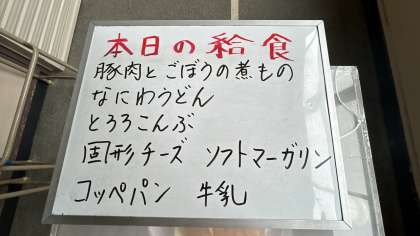 本日の給食
豚肉とごぼうの煮もの
なにわうどん
とろろこんぶ
固形チーズ ソフトマーガリン
コッペパン 牛乳